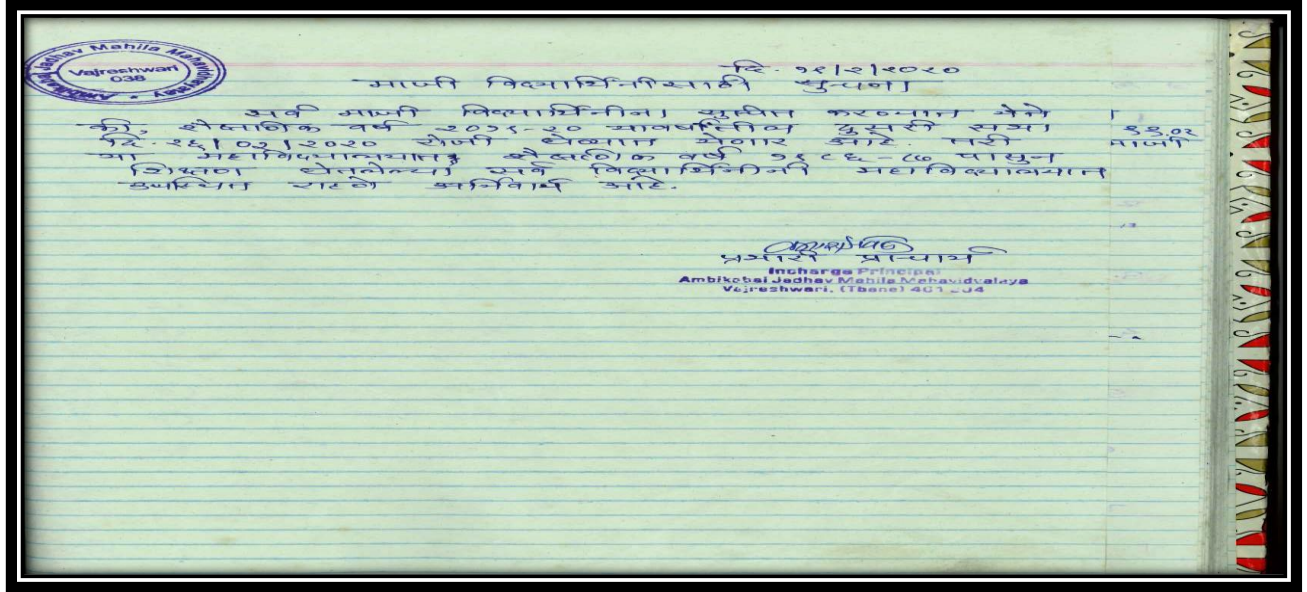 Ambikabai Jadhav Mahila Mahavidyalaya
Vajreshwari
038
दि. १९/२/२०२०
माजी विद्यार्थिनींसाठी सुचना
सर्व माजी विद्यार्थिनींना सुचित करण्यात येते
की, शैक्षणिक वर्ष २०१९-२० यावर्षातील दुसरी सभा
दि. २६/०२/२०२० रोजी घेण्यात येणार आहे. तरी
या महाविद्यालयातून शैक्षणिक वर्ष १९८६-८७ पासुन
शिक्षण घेतलेल्या सर्व विद्यार्थिनींनी महाविद्यालयात
उपस्थित राहणे अनिवार्य आहे.
माजी
प्रभारी प्राचार्य
Incharge Principal
Ambikabai Jadhav Mahila Mahavidyalaya
Vajreshwari, (Thane) 401 204